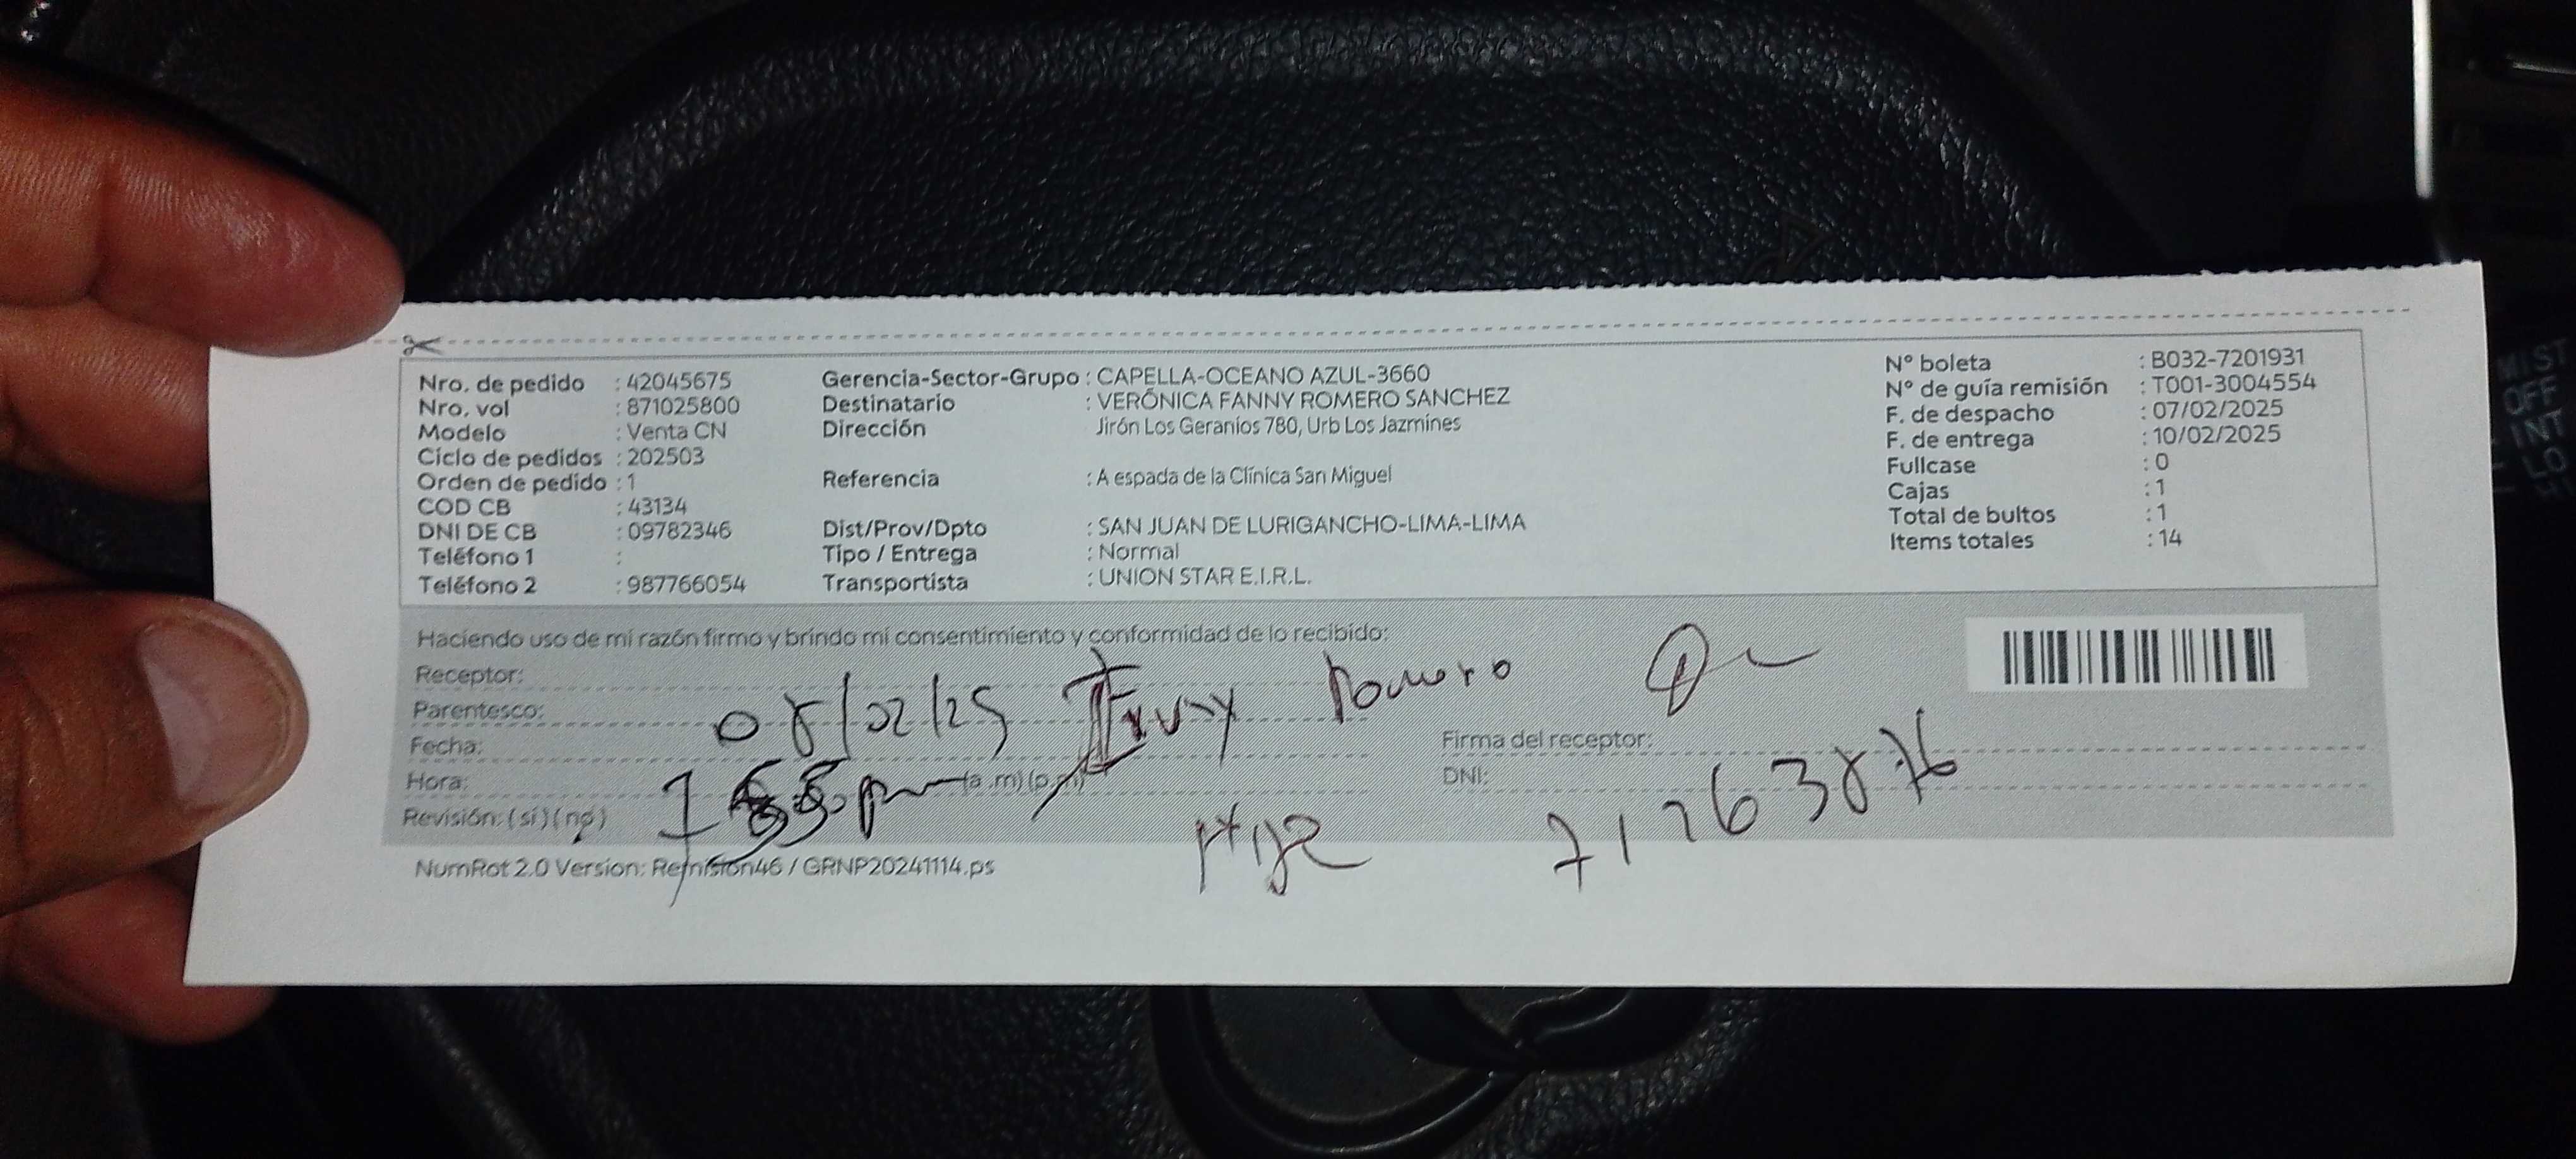 Nro. de pedido : 42045675
Nro. vol : 871025800
Modelo : Venta CN
Ciclo de pedidos : 202503
Orden de pedido : 1
COD CB : 43134
DNI DE CB : 09782346
Teléfono 1 :
Teléfono 2 : 987766054
Gerencia-Sector-Grupo : CAPELLA-OCEANO AZUL-3660
Destinatario : VERÓNICA FANNY ROMERO SANCHEZ
Dirección Jirón Los Geranios 780, Urb Los Jazmines
Referencia : A espada de la Clínica San Miguel
Dist/Prov/Dpto : SAN JUAN DE LURIGANCHO-LIMA-LIMA
Tipo / Entrega : Normal
Transportista : UNION STAR E.I.R.L.
N° boleta : B032-7201931
N° de guía remisión : T001-3004554
F. de despacho : 07/02/2025
F. de entrega : 10/02/2025
Fullcase : 0
Cajas : 1
Total de bultos : 1
Items totales : 14
Haciendo uso de mi razón firmo y brindo mi consentimiento y conformidad de lo recibido:
Receptor:
Parentesco:
08/02/25 Romero
Fecha:
Firma del receptor:
Hora: (a .m) (p.m)
DNI:
Revisión: (si) (no)
NumRot 2.0 Version: Remision46 / GRNP20241114.ps